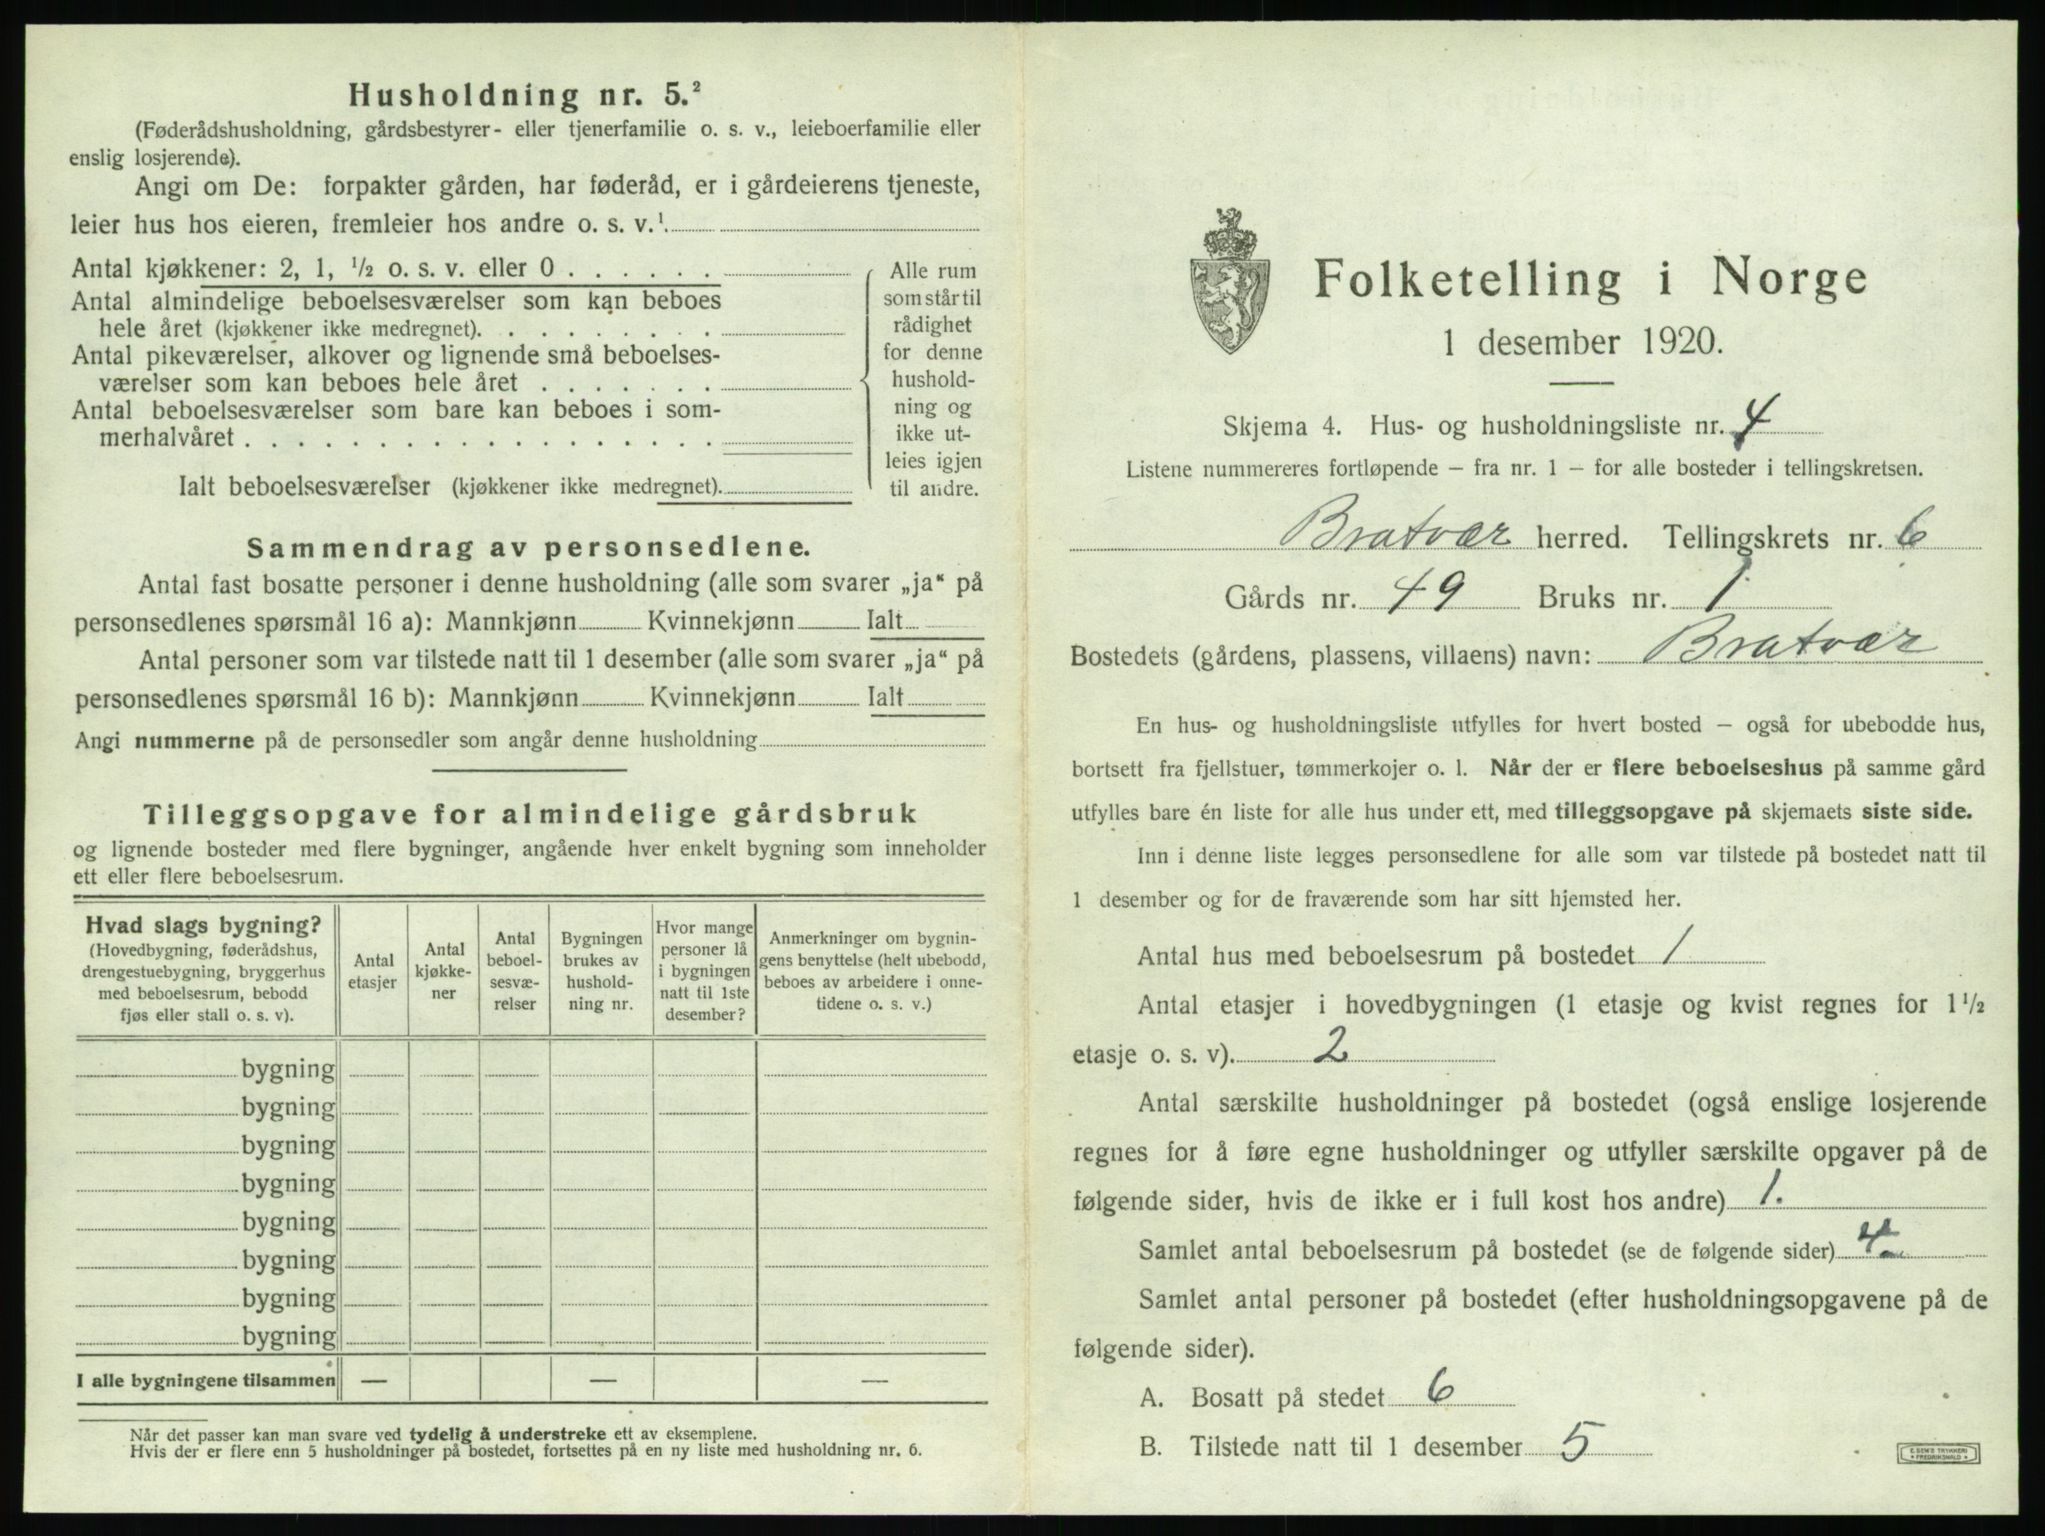 Husholdning nr. 5.²
(Føderådshusholdning, gårdsbestyrer- eller tjenerfamilie o. s. v., leieboerfamilie eller
enslig losjerende).
Angi om De: forpakter gården, har føderåd, er i gårdeierens tjeneste,
leier hus hos eieren, fremleier hos andre o. s. v.¹
Antal kjøkkener: 2, 1, ½ o. s. v. eller 0 . . . . . .
Antal almindelige beboelsesværelser som kan beboes
hele året (kjøkkener ikke medregnet). . . . . . . .
Antal pikeværelser, alkover og lignende små beboelses-
værelser som kan beboes hele året . . . . . . .
Antal beboelsesværelser som bare kan beboes i som-
merhalvåret . . . . . . . . . . . . . . . . . .
Ialt beboelsesværelser (kjøkkener ikke medregnet).
Alle rum
som står til
rådighet
for denne
hushold-
ning og
ikke ut-
leies igjen
til andre.
Sammendrag av personsedlene.
Antal fast bosatte personer i denne husholdning (alle som svarer „ja“ på
personsedlenes spørsmål 16 a): Mannkjønn Kvinnekjønn Ialt
Antal personer som var tilstede natt til 1 desember (alle som svarer „ja“ på
personsedlenes spørsmål 16 b): Mannkjønn Kvinnekjønn Ialt
Angi nummerne på de personsedler som angår denne husholdning
Tilleggsopgave for almindelige gårdsbruk
og lignende bosteder med flere bygninger, angående hver enkelt bygning som inneholder
ett eller flere beboelsesrum.
Hvad slags bygning?
(Hovedbygning, føderådshus,
drengestuebygning, bryggerhus
med beboelsesrum, bebodd
fjøs eller stall o. s. v).
Antal
etasjer
Antal
kjøkke-
ner
Antal
beboel-
sesvæ-
relser
Bygningen
brukes av
hushold-
ning nr.
Hvor mange
personer lå
i bygningen
natt til 1ste
desember?
Anmerkninger om bygnin-
gens benyttelse (helt ubebodd,
beboes av arbeidere i onne-
tidene o. s. v.)
bygning
bygning
bygning
bygning
bygning
bygning
bygning
bygning
I alle bygningene tilsammen — — —
Når det passer kan man svare ved tydelig å understreke ett av eksemplene.
Hvis der er flere enn 5 husholdninger på bostedet, fortsettes på en ny liste med husholdning nr. 6.
Folketelling i Norge
1 desember 1920.
Skjema 4. Hus- og husholdningsliste nr. 4
Listene nummereres fortløpende – fra nr. 1 – for alle bosteder i tellingskretsen.
Bratvær herred. Tellingskrets nr. 6
Gårds nr. 49 Bruks nr. 1
Bostedets (gårdens, plassens, villaens) navn: Bratvær
En hus- og husholdningsliste utfylles for hvert bosted – også for ubebodde hus,
bortsett fra fjellstuer, tømmerkojer o. l. Når der er flere beboelseshus på samme gård
utfylles bare én liste for alle hus under ett, med tilleggsopgave på skjemaets siste side.
Inn i denne liste legges personsedlene for alle som var tilstede på bostedet natt til
1 desember og for de fraværende som har sitt hjemsted her.
Antal hus med beboelsesrum på bostedet 1
Antal etasjer i hovedbygningen (1 etasje og kvist regnes for 1½
etasje o. s. v). 2
Antal særskilte husholdninger på bostedet (også enslige losjerende
regnes for å føre egne husholdninger og utfyller særskilte opgaver på de
følgende sider, hvis de ikke er i full kost hos andre) 1.
Samlet antal beboelsesrum på bostedet (se de følgende sider) 4
Samlet antal personer på bostedet (efter husholdningsopgavene på de
følgende sider).
A. Bosatt på stedet 6
B. Tilstede natt til 1 desember 5
E. SEM'S TRYKKERI
FREDRIKSHALD